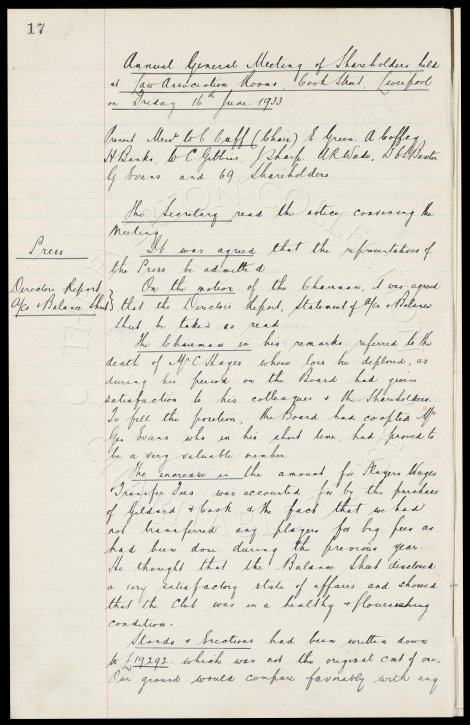 17
Annual General Meeting of Shareholders held
at Law Association Rooms, Cook Street, Liverpool
on Friday 16th June 1933
Present Messrs W. C. Cuff (Chair) E. Green. A Coffey
H Banks, W C Gibbins, J Sharp. A R Wade, Dr C S Baxter
G Evans and 69 Shareholders
The Secretary read the notice convening the
Meeting.
Press
It was agreed that the representatives of
the Press be admitted
Directors Report
a/cs & Balance Sheet}
On the motion of the Chairman, it was agreed
that the Directors Report, Statement of a/cs & Balance
Sheet be taken as read
The Chairman in his remarks referred to the
death of Mr C. Sages whose loss he deplored, as
during his period on the Board had given
satisfaction to his colleagues & the Shareholders.
To fill the position, the Board had coopted Mr
Geo Evans who in his short time, had proved to
be a very valuable member.
The increase in the amount for Players Wages
& Transfer Fees was accounted for by the purchase
of Geldard & Cook & the fact that we had
not transferred any players for big fees as
had been done during the previous year.
He thought that the Balance Sheet disclosed
a very satisfactory state of affairs and showed
that the Club was in a healthy & flourishing
condition.
Stands & Erections had been written down
to £19292. which was not the original cost of one.
Our ground would compare favorably with any